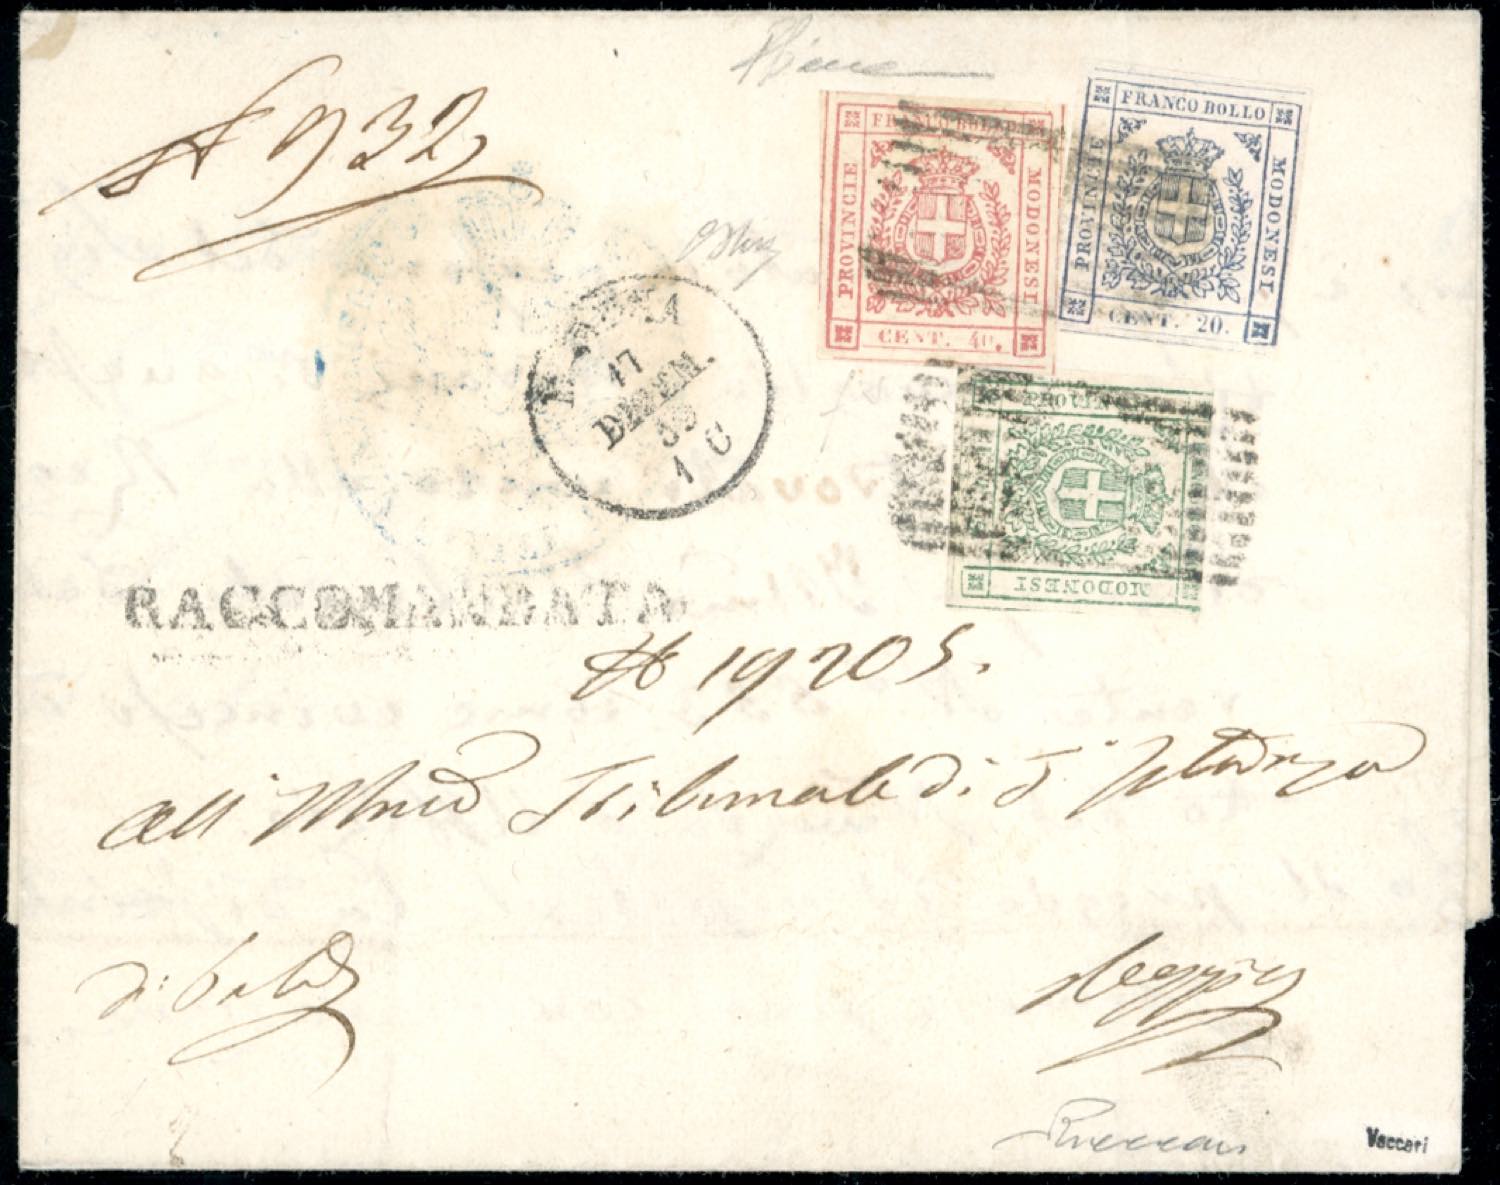 932
FRANCO BOLLO
PROVINCIE
MODONESI
CENT. 40.
FRANCO BOLLO
PROVINCIE
MODONESI
CENT. 20.
17
DECEM.
59
1 C
MODONESI
RACCOMANDATA
# 19205.
all' Tribunale di I Istanza
Reggio
Vaccari